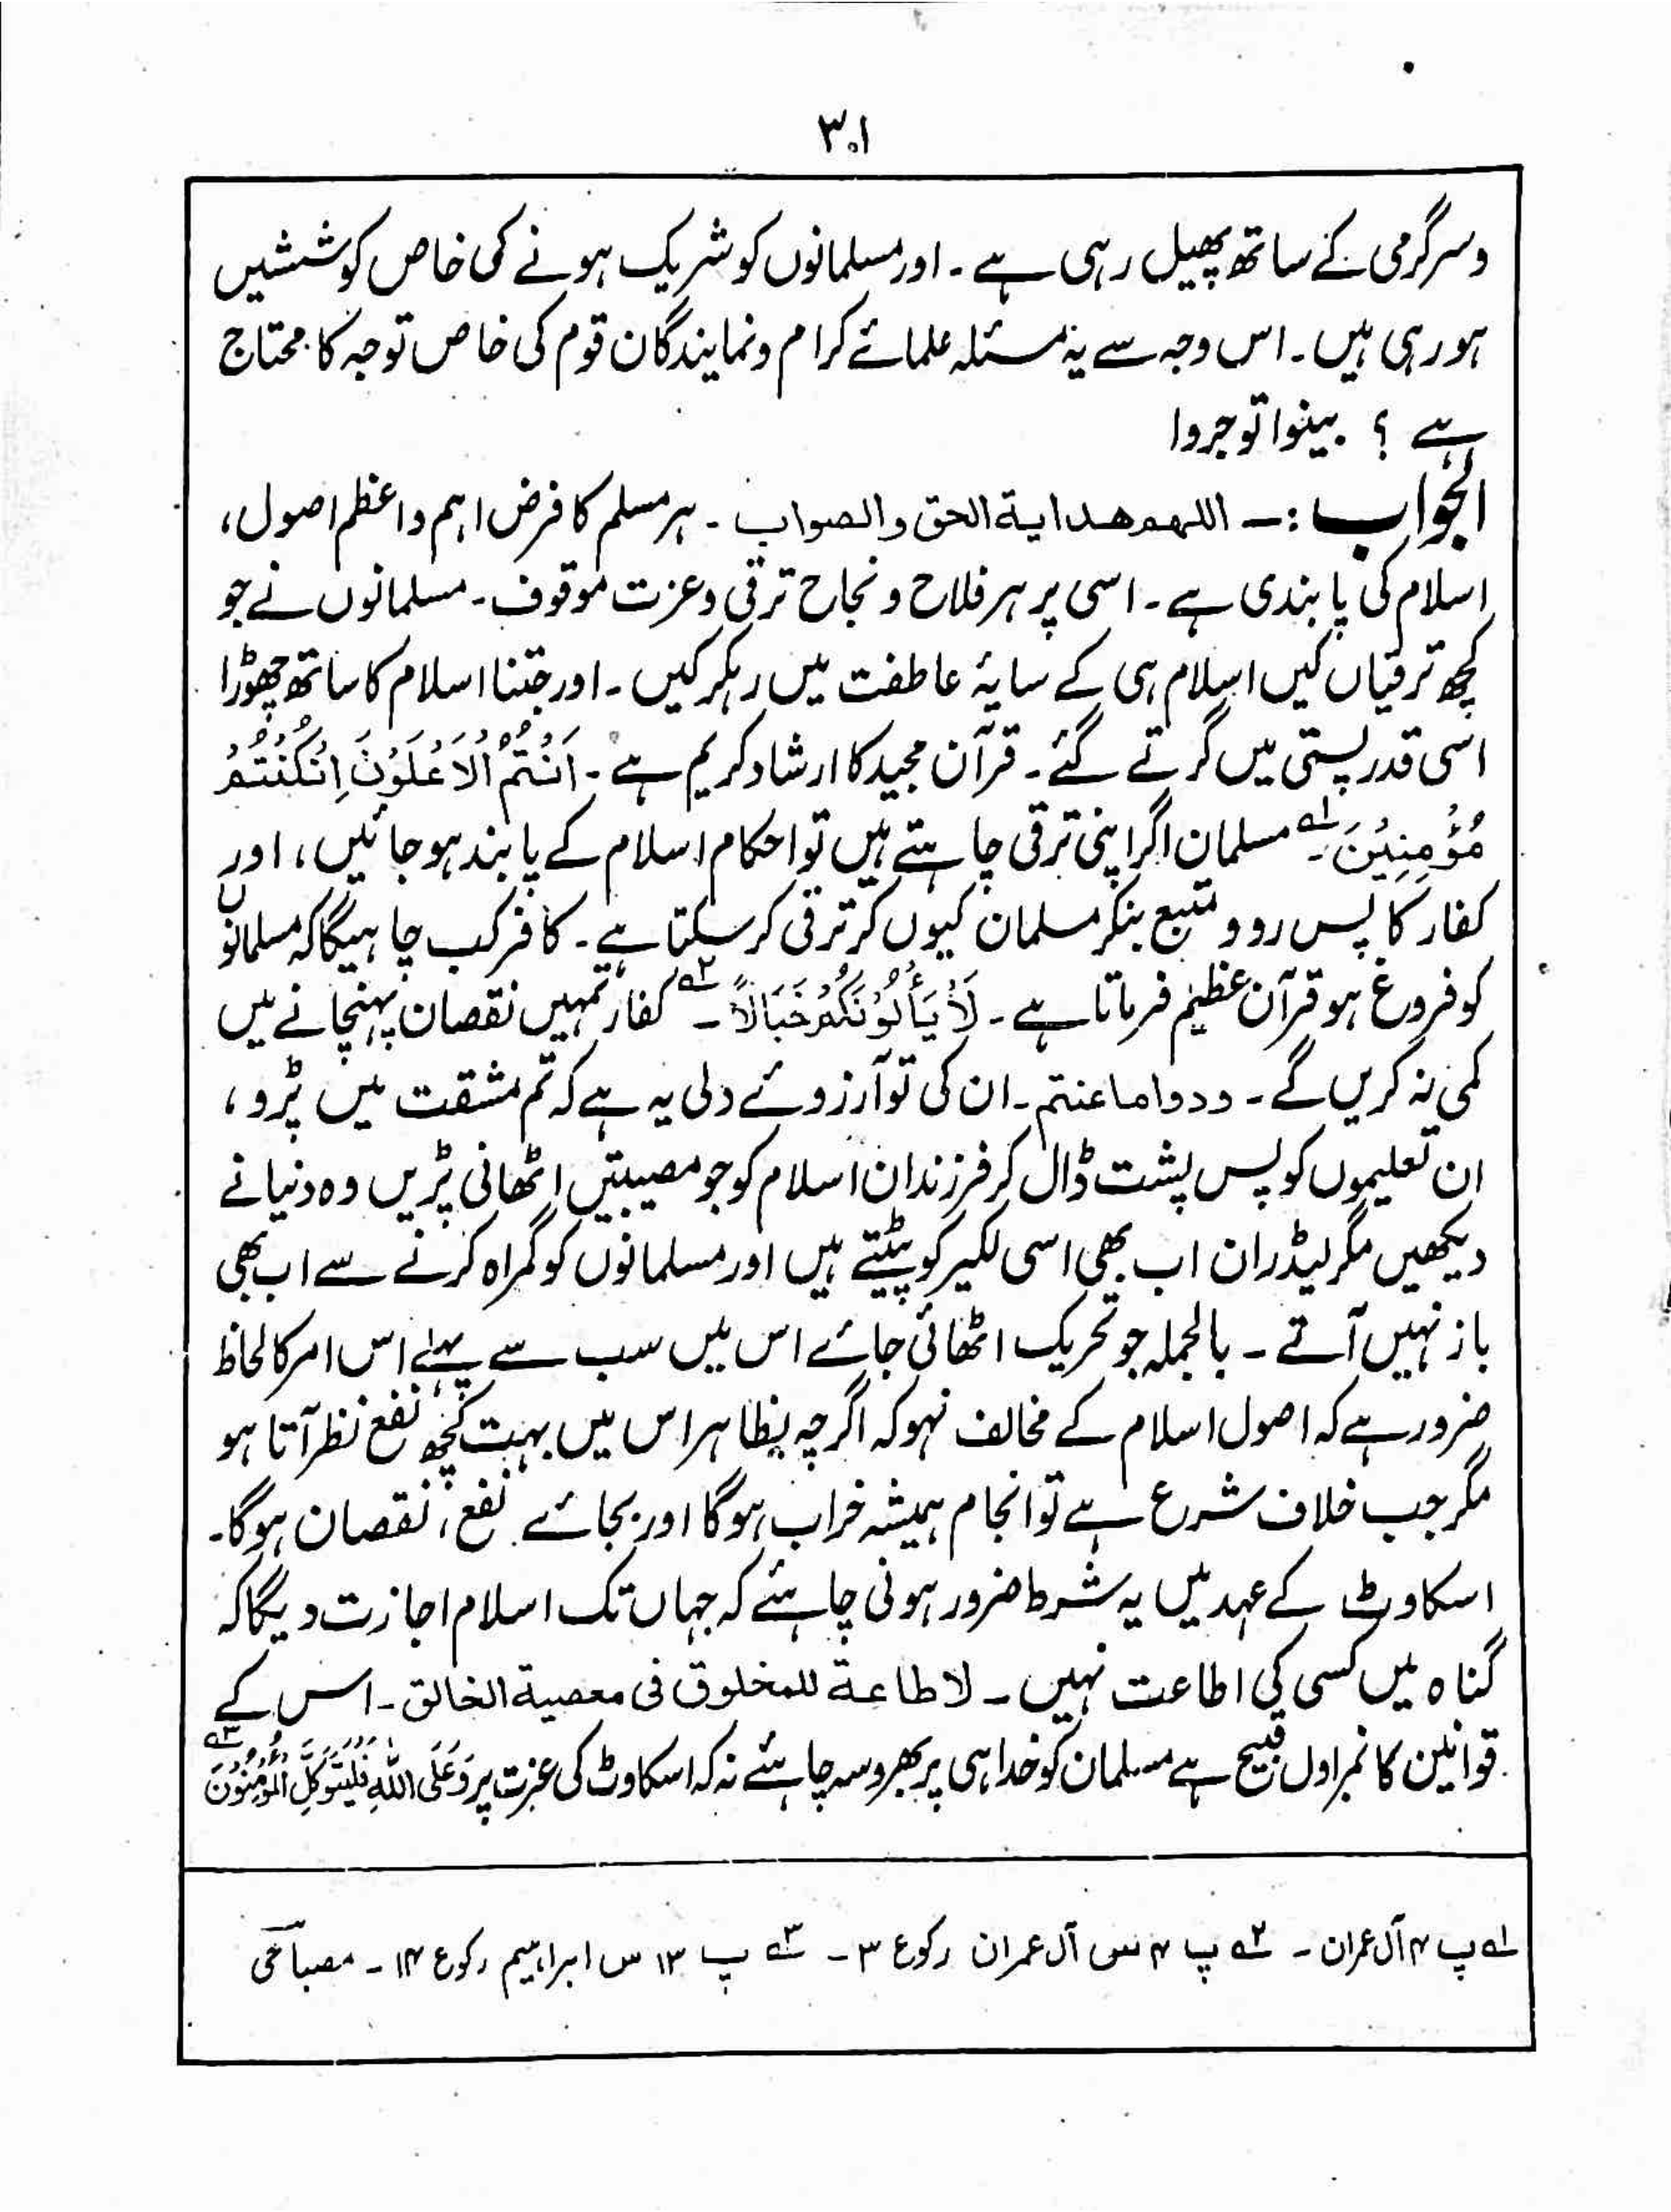 ۳۰۱
وسرگرمی کے ساتھ پھیل رہی ہے ۔ اور مسلمانوں کو شریک ہونے کی خاص کوششیں
ہو رہی ہیں ۔ اس وجہ سے یہ مسئلہ علمائے کرام و نمایندگان قوم کی خاص توجہ کا محتاج
ہے ؟ بینوا توجروا
الجواب :۔ اللہم ھدایۃ الحق والصواب ۔ ہر مسلم کا فرض اہم و اعظم اصول ،
اسلام کی پابندی ہے ۔ اسی پر ہر فلاح و نجاح ترقی و عزت موقوف ۔ مسلمانوں نے جو
کچھ ترقیاں کیں اسلام ہی کے سایۂ عاطفت میں رہکر کیں ۔ اور جتنا اسلام کا ساتھ چھوڑا
اسی قدر پستی میں گرتے گئے ۔ قرآن مجید کا ارشاد کریم ہے ۔ اَنْتُمُ الْاَعْلَوْنَ اِنْ کُنْتُمْ
مُؤْمِنِیْنَ ؁۱ ۔ مسلمان اگر اپنی ترقی چاہتے ہیں تو احکام اسلام کے پابند ہو جائیں ، اور
کفار کا پس رو و متبع بنکر مسلمان کیوں کر ترقی کر سکتا ہے ۔ کافر کب چاہیگا کہ مسلمانوں
کو فروغ ہو قرآن عظیم فرماتا ہے ۔ لَا یَأْلُوْنَکُمْ خَبَالًا ؁۲ ۔ کفار تمہیں نقصان پہنچانے میں
کمی نہ کریں گے ۔ ودوا ما عنتم ۔ ان کی تو آرزوئے دلی یہ ہے کہ تم مشقت میں پڑو ،
ان تعلیموں کو پس پشت ڈال کر فرزندان اسلام کو جو مصیبتیں اٹھانی پڑیں وہ دنیا نے
دیکھیں مگر لیڈران اب بھی اسی لکیر کو پیٹتے ہیں اور مسلمانوں کو گمراہ کرنے سے اب بھی
باز نہیں آتے ۔ بالجملہ جو تحریک اٹھائی جائے اس میں سب سے پہلے اس امر کا لحاظ
ضرور ہے کہ اصول اسلام کے مخالف نہو کہ اگرچہ بظاہر اس میں بہت کچھ نفع نظر آتا ہو
مگر جب خلاف شرع ہے تو انجام ہمیشہ خراب ہوگا اور بجائے نفع ، نقصان ہوگا ۔
اسکاوٹ کے عہد میں یہ شرط ضرور ہونی چاہئے کہ جہاں تک اسلام اجازت دیگا کہ
گناہ میں کسی کی اطاعت نہیں ۔ لا طاعۃ للمخلوق فی معصیۃ الخالق ۔ اس کے
قوانین کا نمبر اول قبیح ہے مسلمان کو خدا ہی پر بھروسہ چاہئے نہ کہ اسکاوٹ کی عزت پر وَعَلَی اللّٰہِ فَلْیَتَوَکَّلِ الْمُؤْمِنُوْنَ ؁۳
؁۱ پ ۴ آل عمران ۔ ؁۲ پ ۴ س آل عمران رکوع ۳ ۔ ؁۳ پ ۱۳ س ابراہیم رکوع ۱۴ ۔ مصباحی